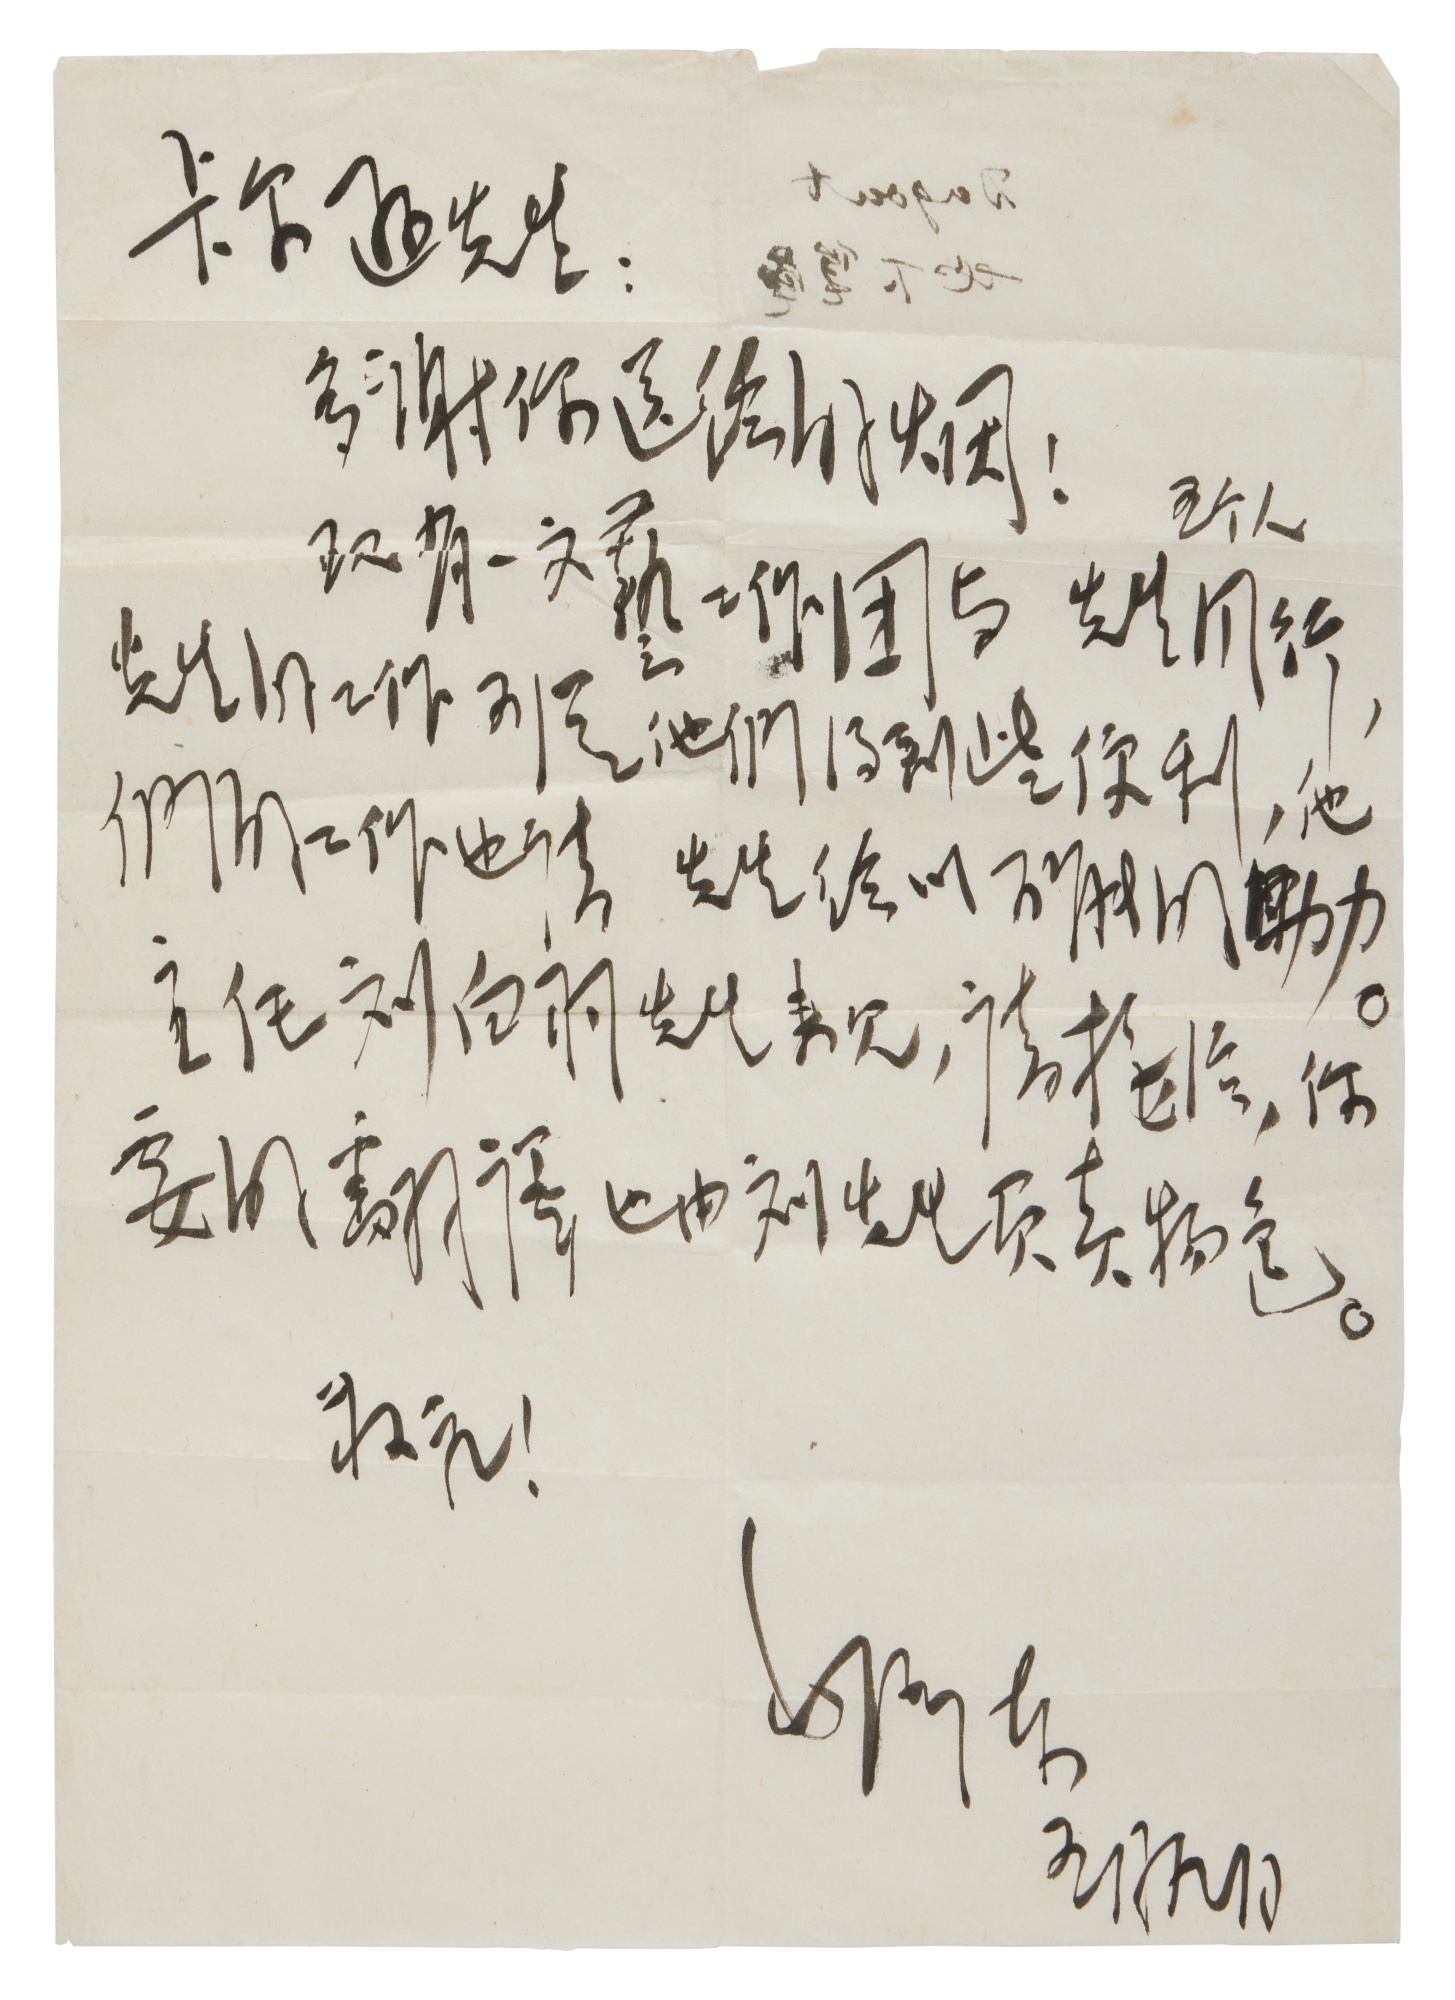 卡尔逊先生：
多謝你送給的烟！
五个人
现有一文藝工作团与 先生同行，
先生的工作可使他們得到些便利，他
們的工作也請 先生給以可能的助。
主任刘白羽先生来见，請接洽，你
要的翻譯也由刘先生负责物色。
敬礼！
毛泽东
五月九日